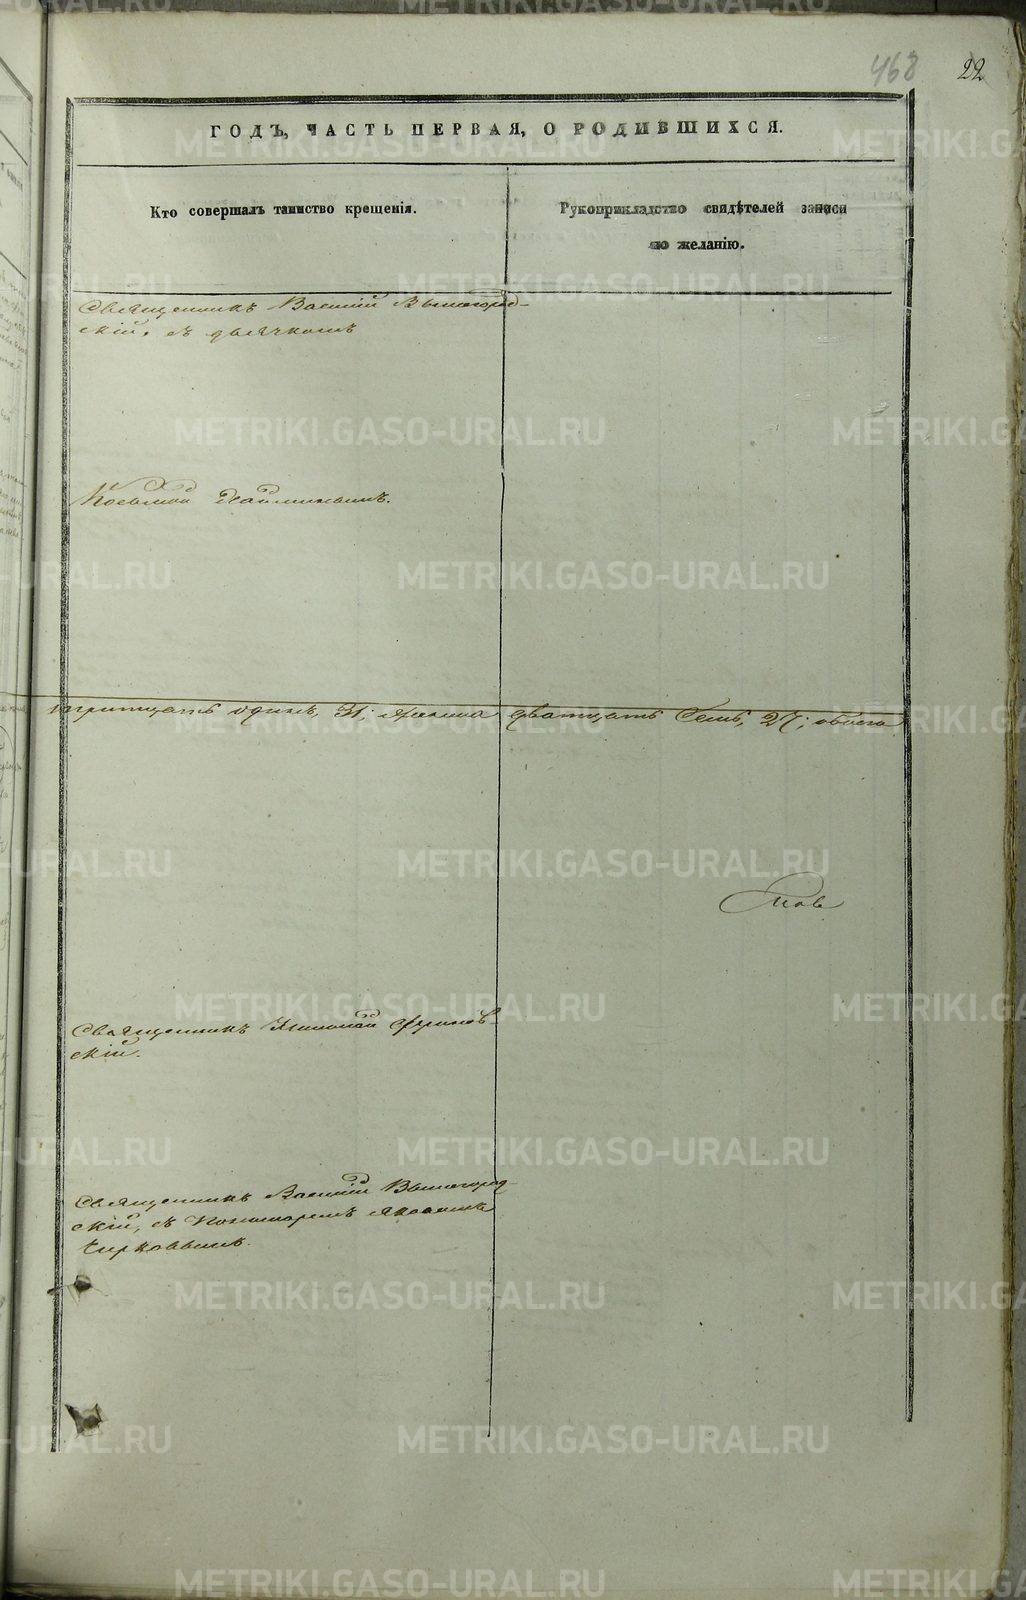 468 22
ГОДЪ, ЧАСТЬ ПЕРВАЯ, О РОДИВШИХСЯ.
Кто совершалъ таинство крещенія.
Рукоприкладство свидѣтелей записи
по желанію.
Священникъ Василій Вышегород-
скій, съ дьячкомъ
Козьмой
тритцать одинъ, 31; женска дватцать семь, 27; обоего
Священникъ
скій.
Священникъ Василій Вышегород-
скій, съ Пономаремъ Яковомъ
Чирковымъ.
METRIKI.GASO-URAL.RU